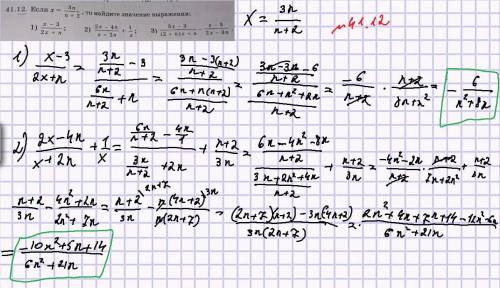 41.12. Если x = 3n/(n+2), то найдите значение выражения:
1) (x−3)/(2x+n); 2) (2x−4n)/(x+2n) + 1/x; 3)
x = 3n/(n+2)
n41.12
1) (x−3)/(2x+n) = (3n/(n+2) − 3)/(6n/(n+2) + n) = ((3n−3(n+2))/(n+2))/((6n+n(n+2))/(n+2)) = ((3n−3n−6)/(n+2))/((6n+n²+2n)/(n+2)) = −6/(n+2) · (n+2)/(8n+n²) = −6/(n²+8n)
2) (2x−4n)/(x+2n) + 1/x = (6n/(n+2) − 4n/1)/(3n/(n+2) + 2n) + (n+2)/3n = ((6n−4n²−8n)/(n+2))/((3n+2n²+4n)/(n+2)) + (n+2)/3n = (−4n²−2n)/(n+2) · (n+2)/(7n+2n²) + (n+2)/3n
(n+2)/3n − (4n²+2n)/(2n²+7n) = (n+2)/3n − n(4n+2)/n(2n+7) = ((2n+7)(n+2)−3n(4n+2))/3n(2n+7) = (2n²+4n+7n+14−12n²−6n)/(6n²+21n)
= (−10n²+5n+14)/(6n²+21n)